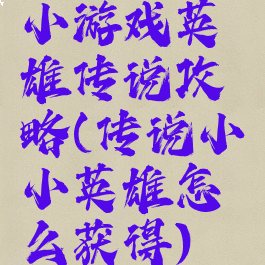 小游戏英
雄传说攻
略(传说小
小英雄怎
么获得)